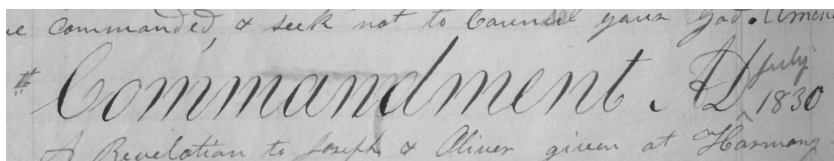 e commanded, & seek not to Council your God. Amen
th Commandment AD July 1830
A Revelation to Joseph & Oliver given at Harmony